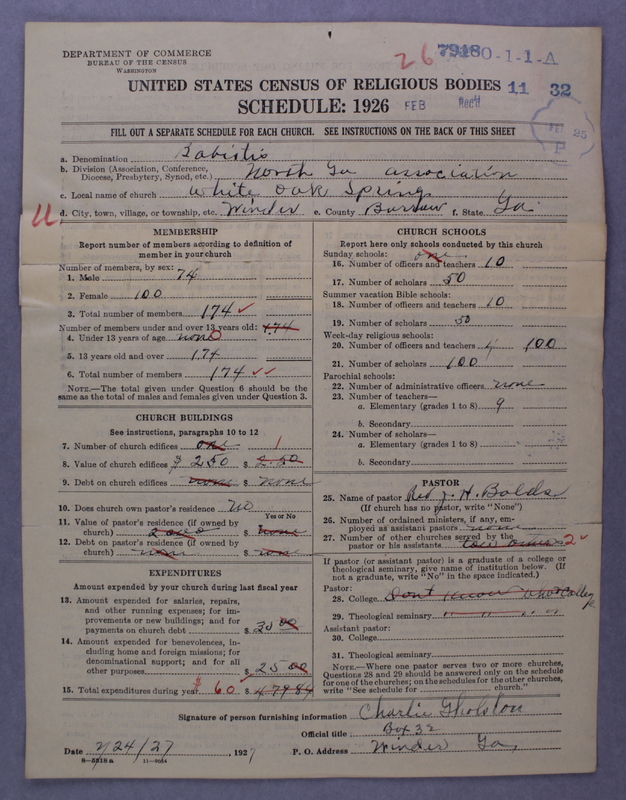 DEPARTMENT OF COMMERCE
BUREAU OF THE CENSUS
WASHINGTON
26 7918 0-1-1-A
UNITED STATES CENSUS OF RELIGIOUS BODIES 11 32
SCHEDULE: 1926 FEB Rec'd
FILL OUT A SEPARATE SCHEDULE FOR EACH CHURCH. SEE INSTRUCTIONS ON THE BACK OF THIS SHEET
a. Denomination Babistis
b. Division (Association, Conference, Diocese, Presbytery, Synod, etc.) North Ga association
c. Local name of church White Oak Spring
d. City, town, village, or township, etc. Winder e. County Barrow f. State Ga.
MEMBERSHIP
Report number of members according to definition of member in your church
Number of members, by sex:
1. Male 74
2. Female 100
3. Total number of members 174
Number of members under and over 13 years old: 174
4. Under 13 years of age none
5. 13 years old and over 174
6. Total number of members 174
NOTE.—The total given under Question 6 should be the same as the total of males and females given under Question 3.
CHURCH BUILDINGS
See instructions, paragraphs 10 to 12
7. Number of church edifices one 1
8. Value of church edifices $ 250 $ 250
9. Debt on church edifices none $ none
10. Does church own pastor's residence? No
Yes or No
11. Value of pastor's residence (if owned by church) $ none
12. Debt on pastor's residence (if owned by church) none $ none
EXPENDITURES
Amount expended by your church during last fiscal year
13. Amount expended for salaries, repairs, and other running expenses; for improvements or new buildings; and for payments on church debt $ 35 00
14. Amount expended for benevolences, including home and foreign missions; for denominational support; and for all other purposes $ 25 00
15. Total expenditures during year $ 60 $ 479 84
CHURCH SCHOOLS
Report here only schools conducted by this church
Sunday schools: one
16. Number of officers and teachers 10
17. Number of scholars 50
Summer vacation Bible schools:
18. Number of officers and teachers 10
19. Number of scholars 50
Week-day religious schools:
20. Number of officers and teachers 100
21. Number of scholars 100
Parochial schools:
22. Number of administrative officers none
23. Number of teachers—
a. Elementary (grades 1 to 8) 9
b. Secondary
24. Number of scholars—
a. Elementary (grades 1 to 8)
b. Secondary
PASTOR
25. Name of pastor Rev. J. H. Bolds
(If church has no pastor, write "None")
26. Number of ordained ministers, if any, employed as assistant pastors none
27. Number of other churches served by the pastor or his assistants 2
If pastor (or assistant pastor) is a graduate of a college or theological seminary, give name of institution below. (If not a graduate, write "No" in the space indicated.)
Pastor:
28. College Dont know what College
29. Theological seminary " " " "
Assistant pastor:
30. College
31. Theological seminary
NOTE.—Where one pastor serves two or more churches, Questions 28 and 29 should be answered only on the schedule for one of the churches; on the schedules for the other churches, write "See schedule for church."
Signature of person furnishing information Charlie Gholston
Official title Box 32
Date 2/24/27, 1927 P. O. Address Winder Ga.
8—5318a 11—9034